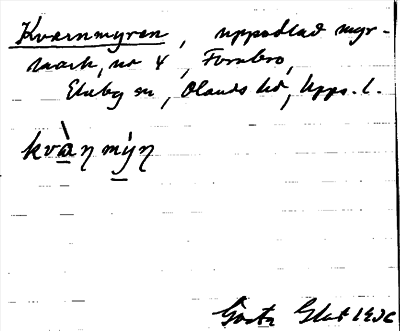 Kvarnmyren, uppodlad myr-
mark, no 4, Fornbro,
Ekeby sn, Olands hd, Upps. l.
kvàn mýn
Gösta